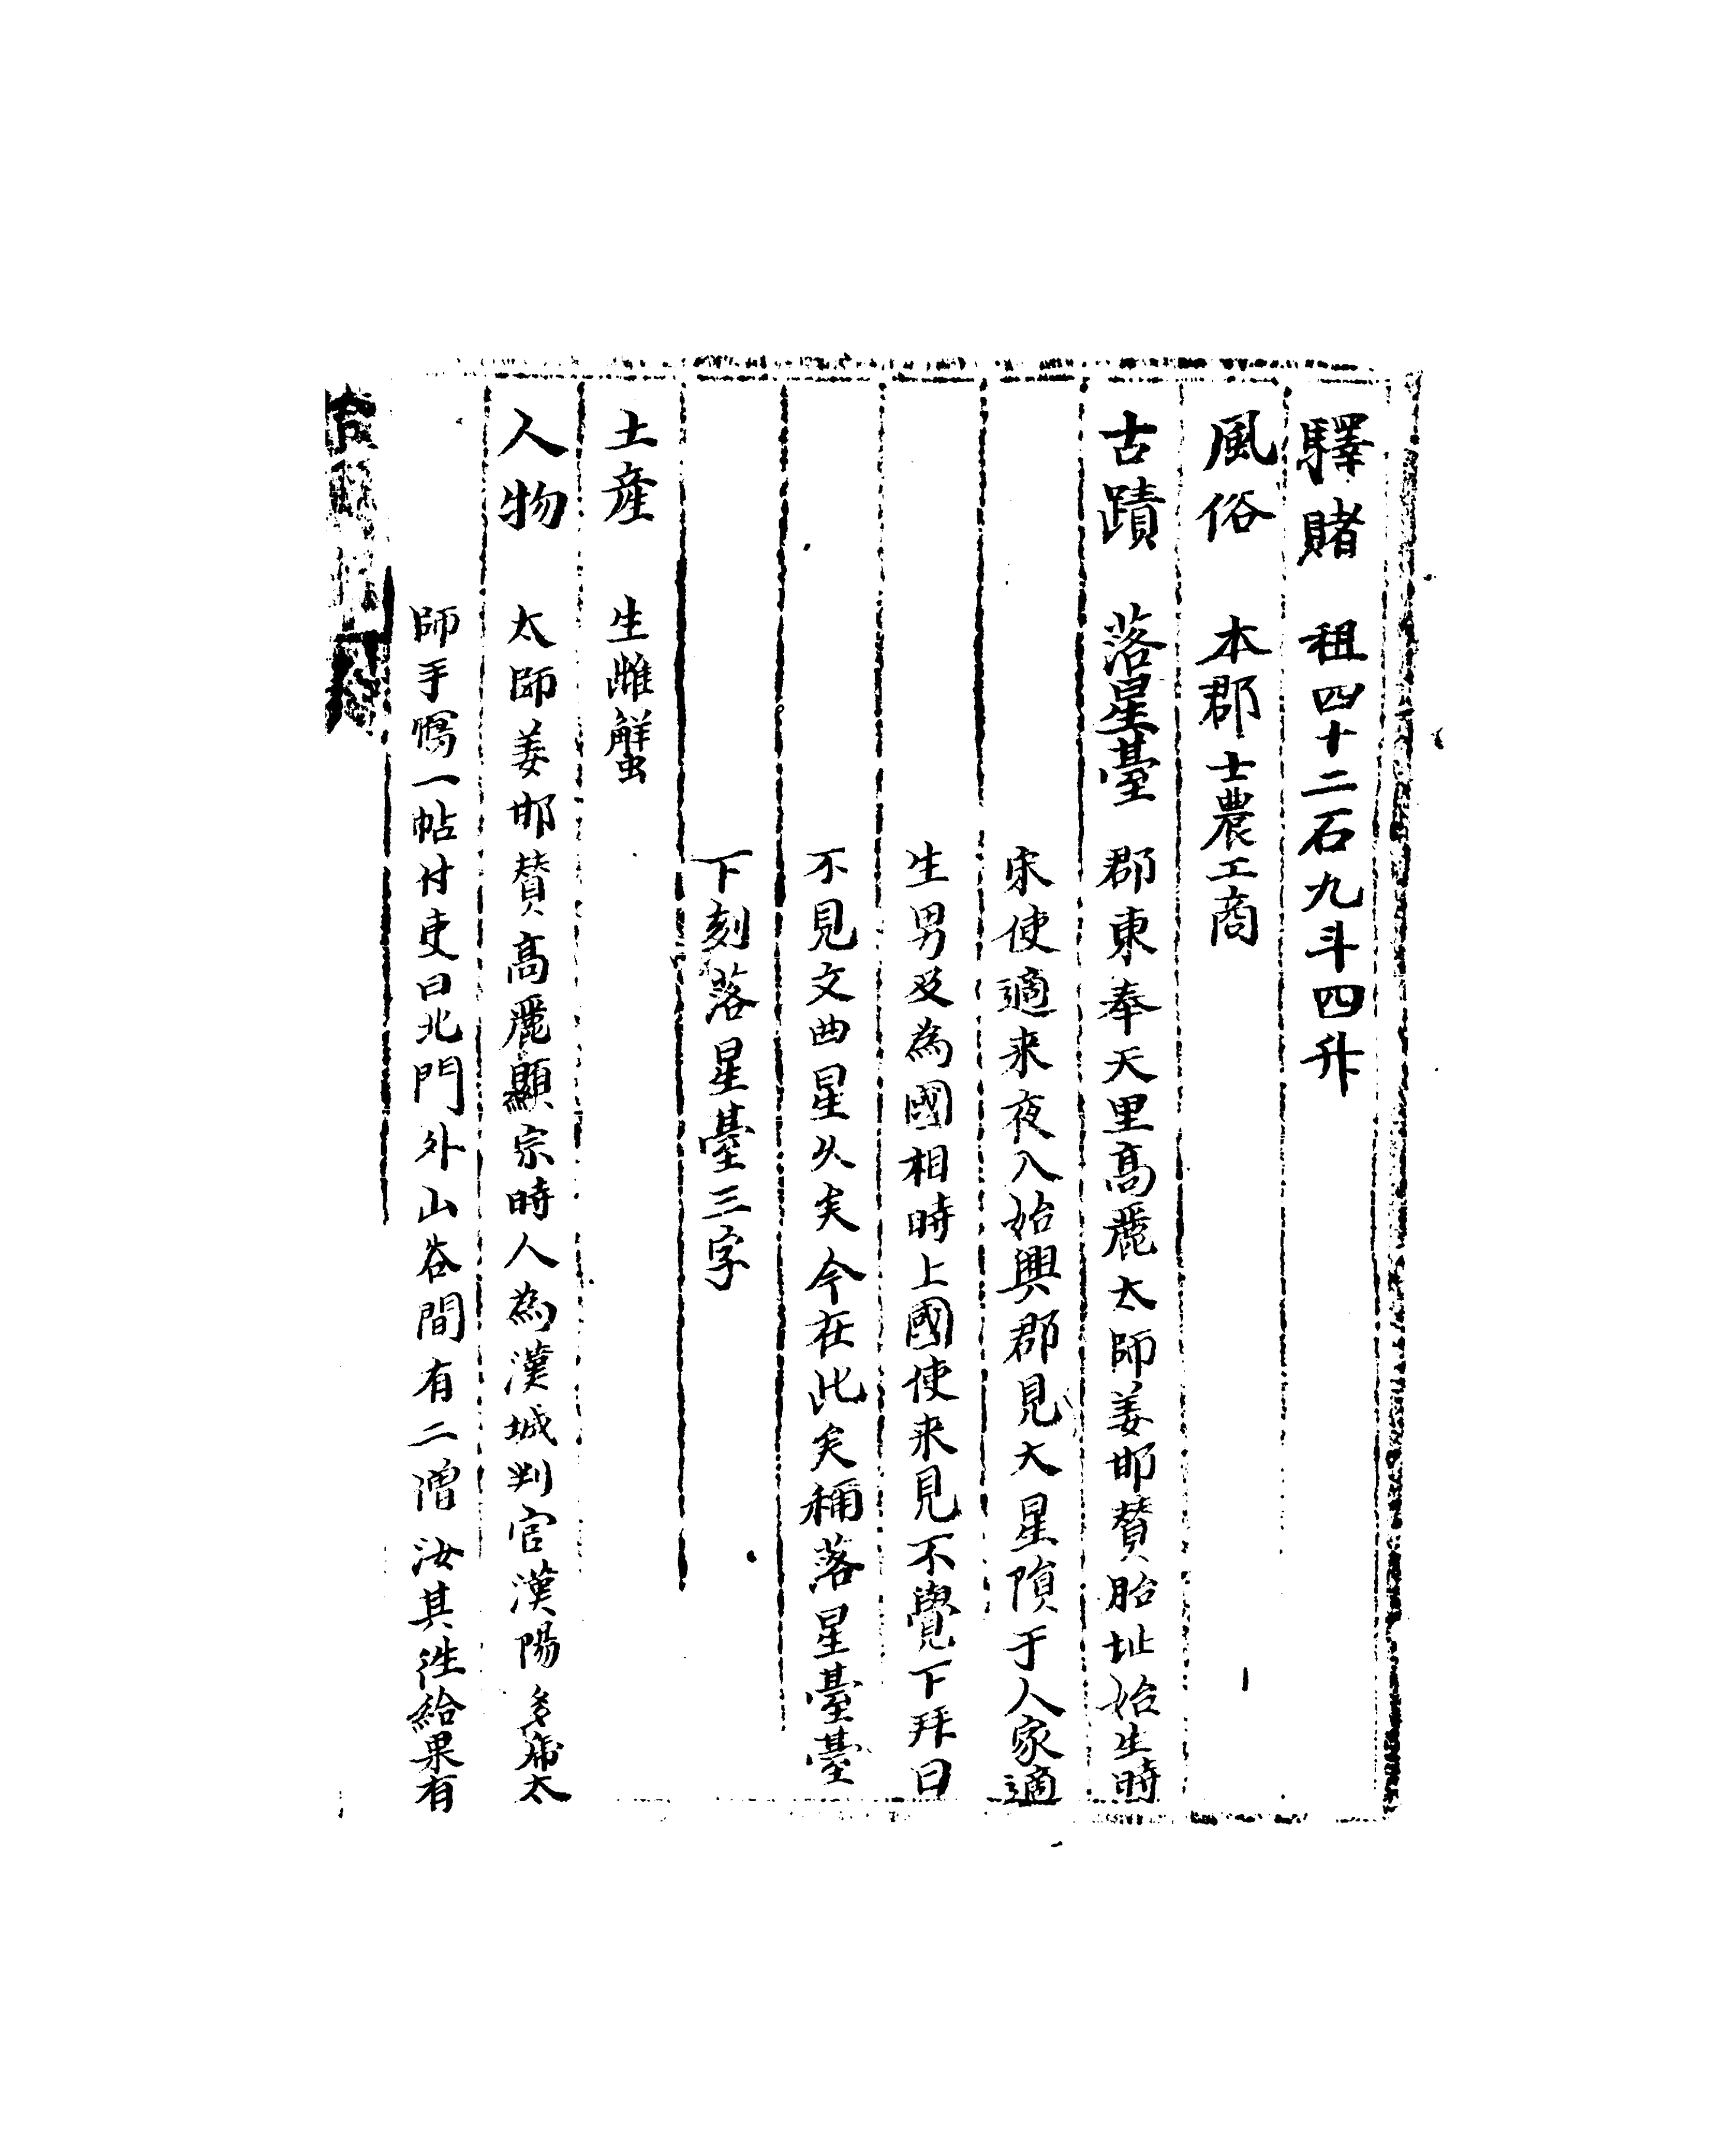 驛賭 租四十二石九斗四升
風俗 本郡士農工商
古蹟 落星臺 郡東奉天里高麗太師姜邯賛胎址始生時
宋使適来夜入始興郡見大星隕于人家適
生男及為國相時上國使来見不覺下拜曰
不見文曲星久矣今在此矣稱落星臺臺
下刻落星臺三字
土産 生雎蟹
人物 太師姜邯賛高麗顯宗時人為漢城判官漢陽多虎太
師手寫一帖付吏曰北門外山谷間有二僧汝其徃給果有